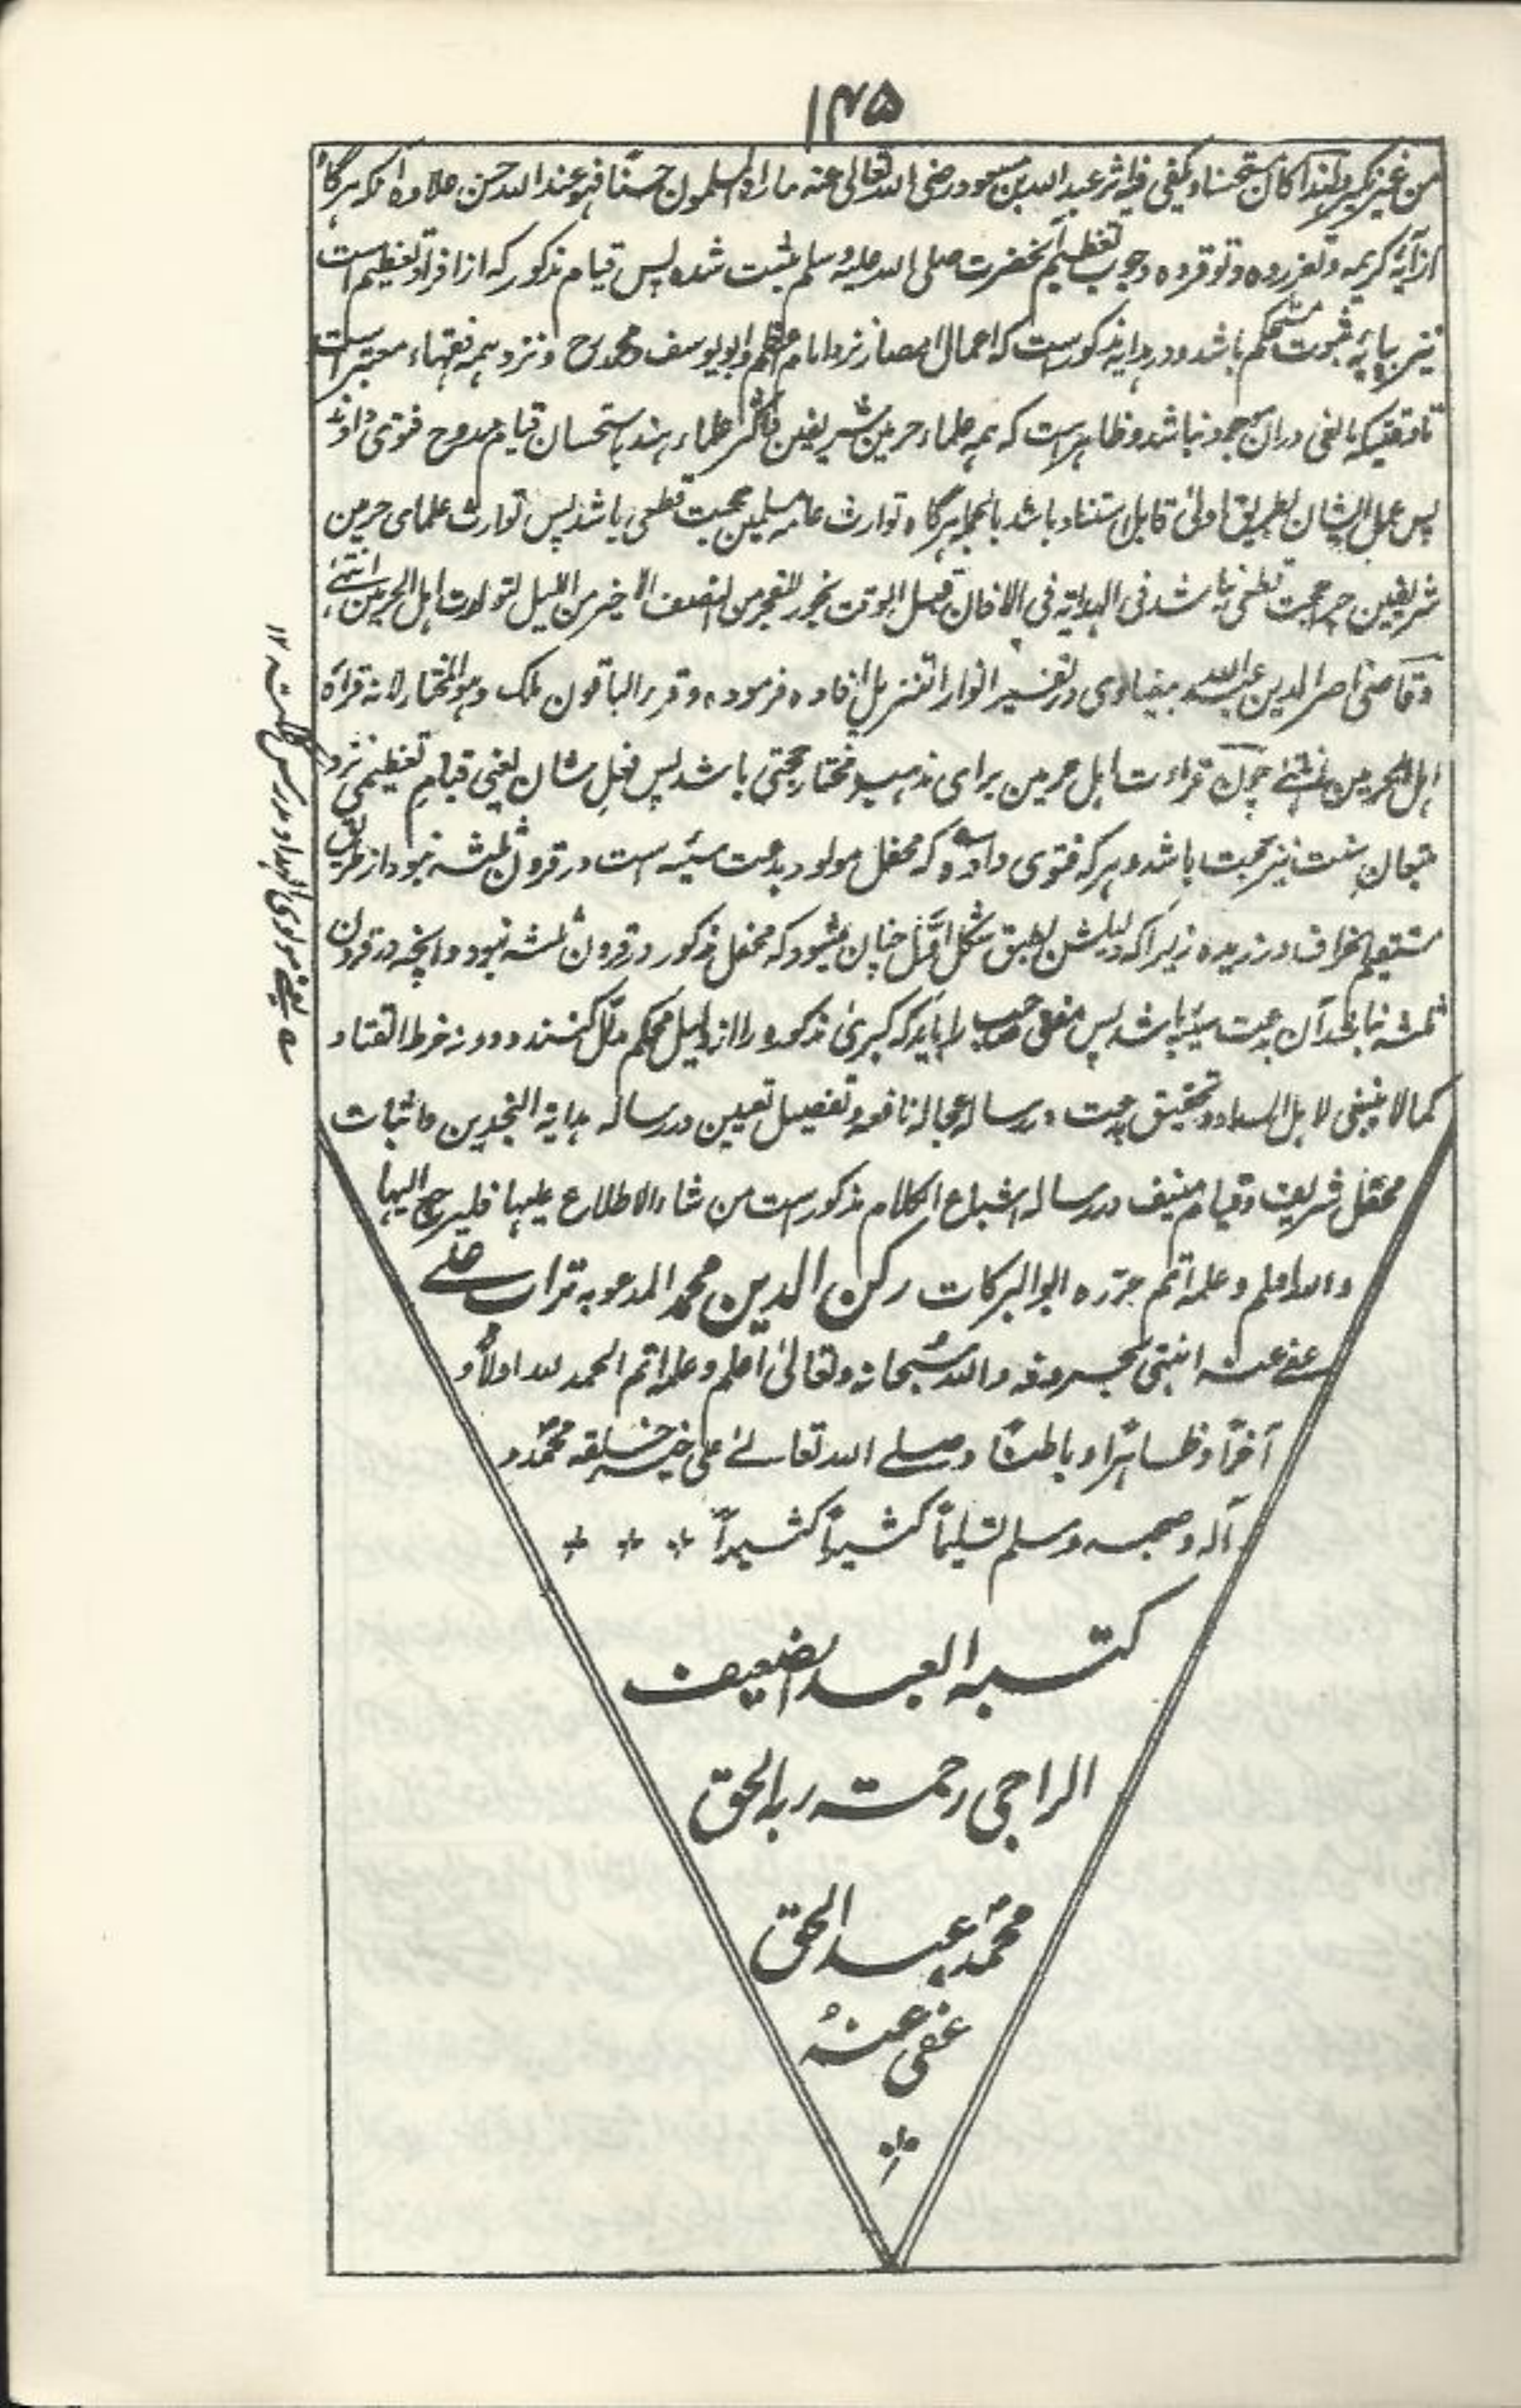 ۱۴۵
من غیر نکیر ولهذا کان مستحسنا ویکفی فیه اثر عبد الله بن مسعود رضی الله تعالی عنه ما راه المسلمون حسنًا فهو عند الله حسن علاوه آنکه هرگاه
از آیهٔ کریمه وتعزروه وتوقروه وجوب تعظیم آنحضرت صلی الله علیه وسلم مثبت شده پس قیام مذکور که از افراد تعظیم است
نیز بپایهٔ ثبوت مستحکم باشد ودر هدایه مذکورست که اعمال امصار نزد امام اعظم وابو یوسف ومحمد رح ونزد همه فقهاء معتبر است
تا وقتیکه مانعی دران موجود نباشد وظاهرست که همه علماء حرمین شریفین واکثر علماء هند باستحسان قیام ممدوح فتوی داوند
پس عمل ایشان بطریق اولی قابل استناد باشد بالجمله هرگاه توارث عامه مسلمین حجت قطعی باشد پس توارث علمای حرمین
شریفین چرا حجت قطعی نباشد فی الهدایة فی الاذان قبل الوقت یجوز للفجر من النصف الاخیر من اللیل لتوارث اهل الحرمین انتهی
وقاضی ناصر الدین عبد الله بیضاوی در تفسیر انوار التنزیل افاده فرموده وقرر الباقون ملک وهو المختار لانه قرأة
اهل الحرمین انتهی چون قراءت اهل حرمین برای مذهب مختار حجتی باشد پس فعل شان یعنی قیام تعظیمی نزد
متبعان سنت نیز حجت باشد وهر که فتوی داده که محفل مولود بدعت سیئه است در قرون ثلثه نبود از طریق
مستقیم انحراف ورزیده زیرا که دلیلش بطبق شکل اول چنان میشود که محفل مذکور در قرون ثلثه نبود وانچه در قرون
ثلثه نباشد آن بدعت سیئه باشد پس مفتی صاحب را باید که کبری مذکوره را از دلیل محکم مدلل کنند ودونه خرط القتاد
کمالا یخفی لاهل السداد وتحقیق بدعت در رساله عجاله نافعه وتفصیل تعیین در رساله هدایة النجدین واثبات
محفل شریف وقیام منیف در رساله اشباع الکلام مذکورست من شاء الاطلاع علیها فلیرجع الیها
والله اعلم وعلمه اتم حرره ابو البرکات رکن الدین محمد المدعو به تراب علی
عفی عنه انتهی بحروفه والله سبحانه وتعالی اعلم وعلمه اتم الحمد لله اولًا و
آخرًا وظاهرًا وباطنًا وصلی الله تعالی علی خیر خلقه محمد و
آله وصحبه وسلم تسلیمًا کثیرًا کثیرًا
کتبه العبد الضعیف
الراجی رحمة ربه الحق
محمد عبد الحق
عفی عنه